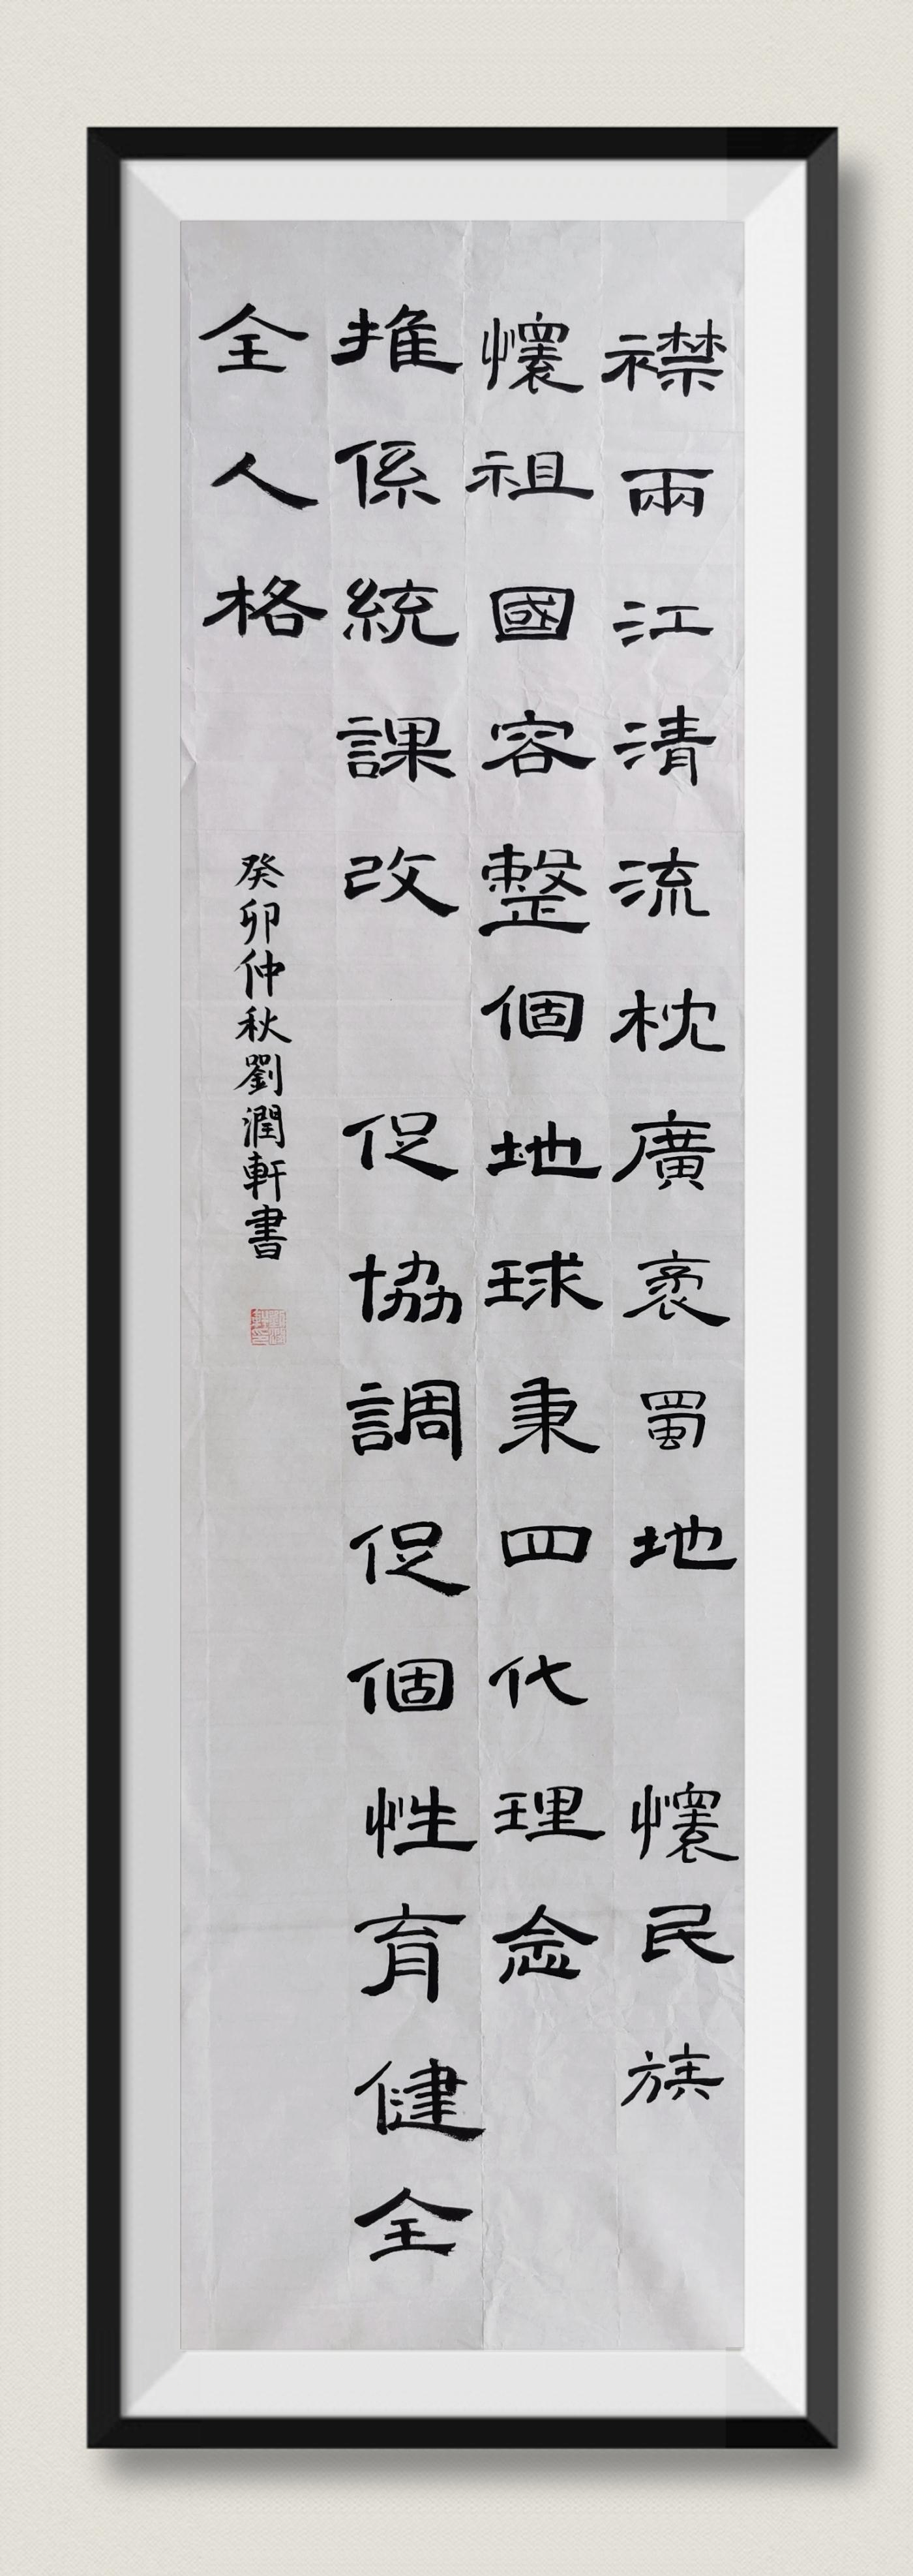 襟兩江清流枕廣袤蜀地 懷民族
懷祖國容整個地球秉四代理念
推係統課改 促協調促個性育健全
全人格
癸卯仲秋劉潤軒書